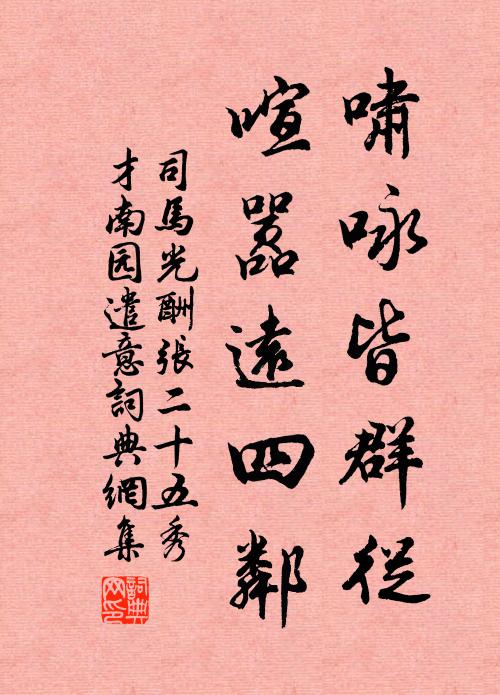 嘯咏皆群從
喧囂遠四鄰
司馬光酬張二十五秀
才南园遣意詞典網集
詞典网印